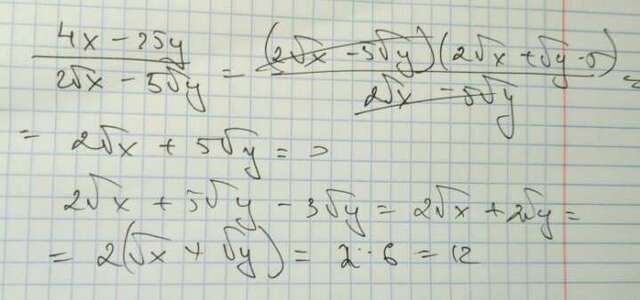 (4x - 25y)/(2√x - 5√y) = ((2√x - 5√y)(2√x + √y · 5))/(2√x - 5√y) =
= 2√x + 5√y = >
2√x + 5√y - 3√y = 2√x + 2√y =
= 2(√x + √y) = 2 · 6 = 12